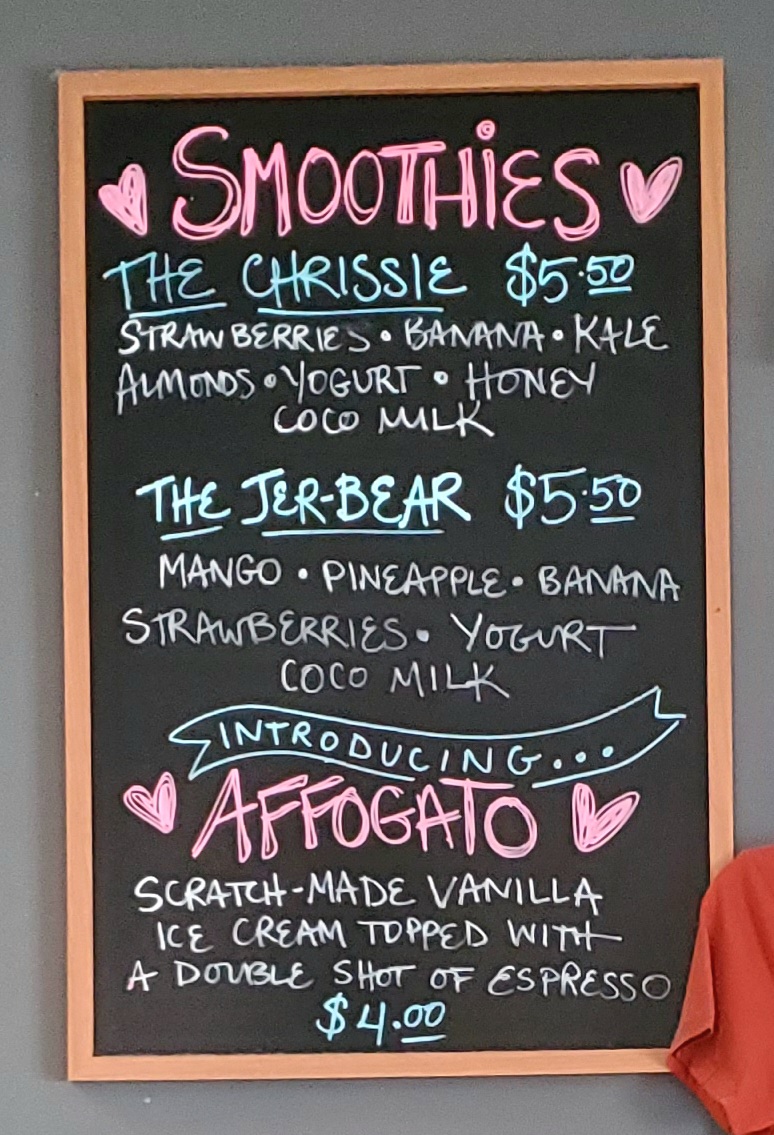 SMOOTHiES
THE CHRISSIE $5.50
STRAWBERRIES • BANANA • KALE
ALMONDS • YOGURT • HONEY
COCO MILK
THE JER-BEAR $5.50
MANGO • PINEAPPLE • BANANA
STRAWBERRIES • YOGURT
COCO MILK
INTRODUCING...
AFFOGATO
SCRATCH-MADE VANILLA
ICE CREAM TOPPED WITH
A DOUBLE SHOT OF ESPRESSO
$4.00